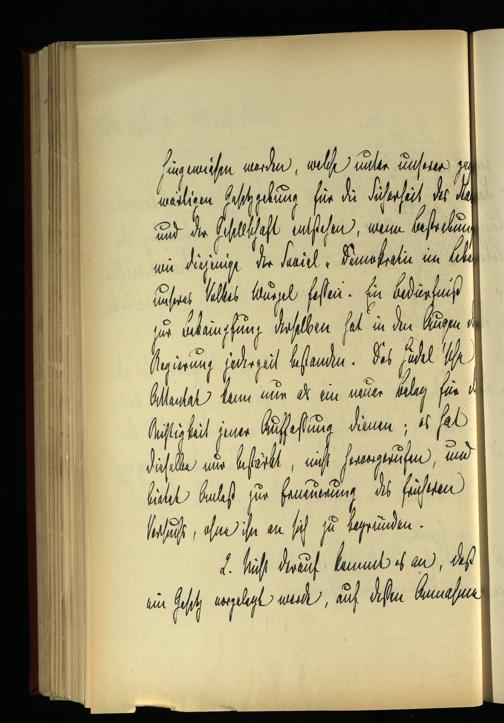 hingewiesen worden, welche unter unserer gegen
wärtigen Gesetzgebung für die Sicherheit des Staa
und der Gesellschaft entstehen, wenn Bestrebun
wie diejenige der Social-Demokratie im Lebe
unseres Volkes Wurzel fassen. Ein Bedürfniß
zur Bekämpfung derselben hat in den Augen der
Regierung jederzeit bestanden. Das Hödel'sche
Attentat kann nur als ein neuer Beleg für die
Richtigkeit jener Auffassung dienen; es hat
dieselbe nur bestärkt, nicht hervorgerufen, und
bietet Anlaß zur Erneuerung des früheren
Versuchs, ohne ihn an sich zu begründen.
2. Nicht darauf kommt es an, daß
ein Gesetz vorgelegt werde, auf dessen Annahme